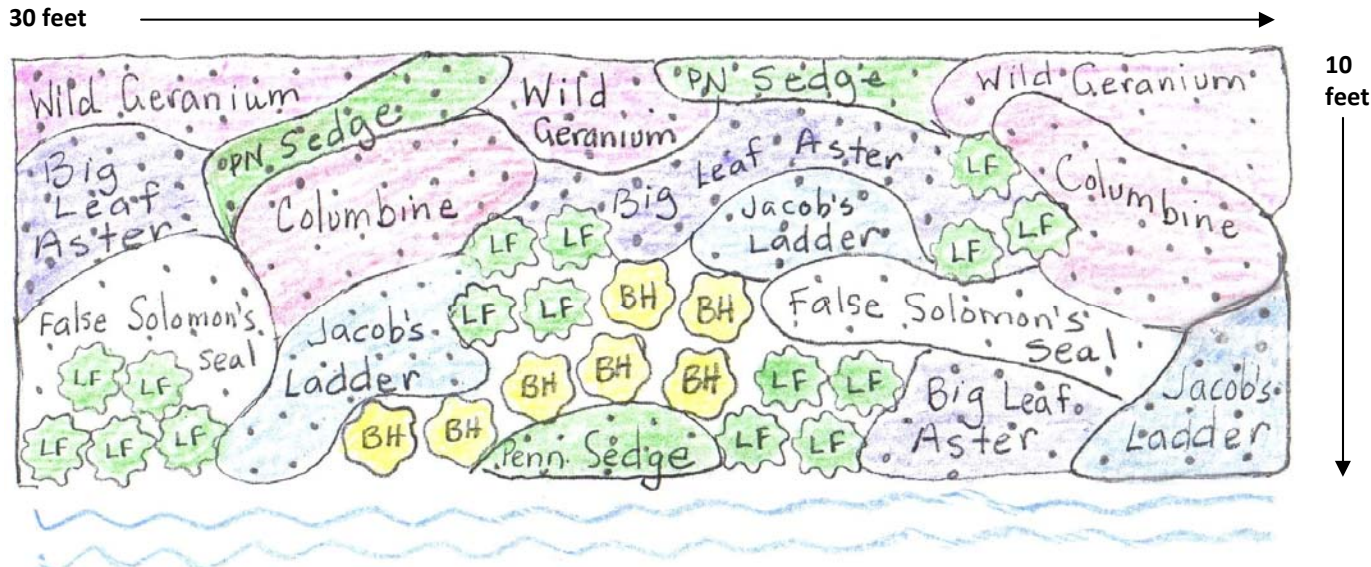 30 feet
10
feet
Wild Geranium
PN Sedge
Wild
Geranium
PN Sedge
Wild Geranium
Big
Leaf
Aster
Columbine
Big Leaf Aster
LF
Columbine
Jacob's
Ladder
LF
LF
LF
LF
False Solomon's
Seal
Jacob's
Ladder
LF
LF
BH
BH
False Solomon's
Seal
LF
LF
BH
BH
BH
LF
LF
Big Leaf
Aster
Jacob's
Ladder
LF
LF
LF
BH
BH
Penn. Sedge
LF
LF